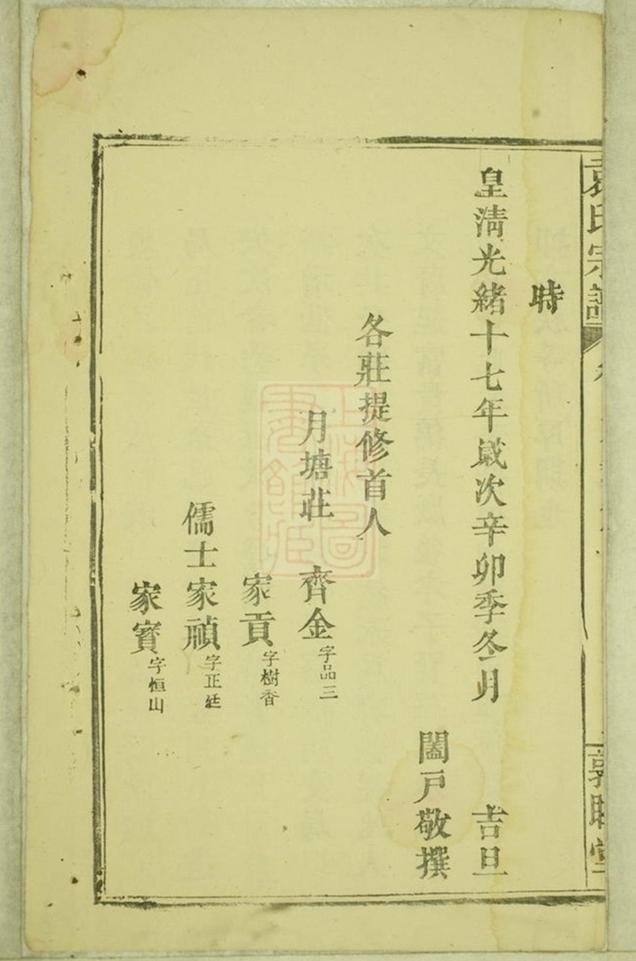 袁氏宗譜
時
皇淸光緒十七年歲次辛卯季冬月　吉旦
闔戶敬撰
各莊提修首人
月塘莊　齊金字品三
家貢字樹香
儒士家禎字正廷
家寶字恒山